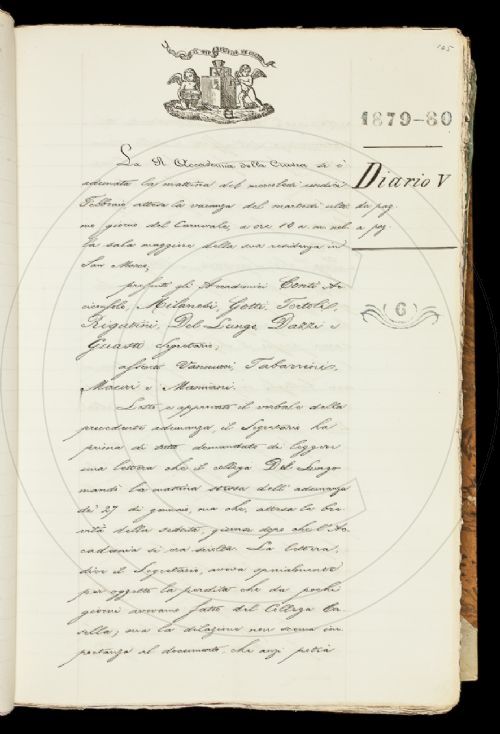 IL PIÙ BEL FIOR NE COGLIE
145
1879-80
La R. Accademia della Crusca si è
adunata la mattina del mercoledì undici
Febbraio, attesa la vacanza del martedì ulti-
mo giorno del Carnevale, a ore 10 a. m. nel-
la sala maggiore della sua residenza in
San Marco;
Diario V
da pag.
a pag.
(6)
presenti gli Accademici Conti Ar-
ciconsolo, Milanesi, Gotti, Tortoli,
Rigutini, Del Lungo, Dazzi e
Guasti Segretario;
assenti Vannucci, Tabarrini,
Mauri e Mamiani.
Letto e approvato il verbale della
precedente adunanza, il Segretario ha
prima di tutto domandato di leggere
una lettera che il collega Del Lungo
mandò la mattina stessa dell'adunanza
de' 27 di gennaio, ma che, attesa la bre-
vità della seduta, giunse dopo che l'Ac-
cademia si era sciolta. La lettera,
dice il Segretario, aveva specialmente
per oggetto la perdita che da pochi
giorni avevamo fatto del Collega Ca-
sella; ma la dilazione non scema im-
portanza al documento, che anzi potrà